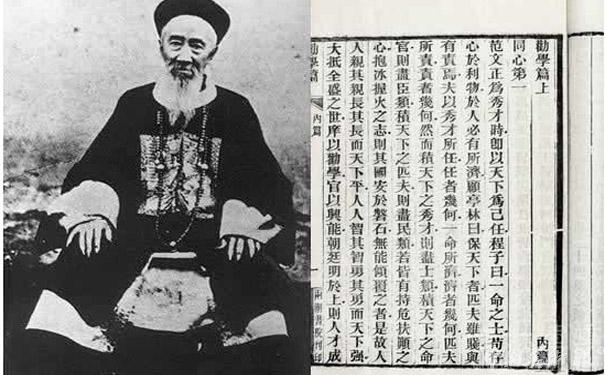 勸學篇上
內篇
同心第一
范文正為秀才時即以天下為己任程子曰一命之士苟存
心於利物於人必有所濟顧亭林曰保天下者匹夫雖賤與
有責焉夫以秀才所任任者幾何一命所濟濟者幾何匹夫
所責責者幾何然而積天下之秀才則盡士類積天下之命
官則盡臣類積天下之匹夫則盡民類若皆有持危扶顛之
心抱冰握火之志則其國安於磐石無能傾覆之者是故人
人親其親長其長而天下平人人智其智勇其勇而天下強
大抵全盛之世庠以勸學官以興能朝廷明於上則人才成
勸學篇
內篇